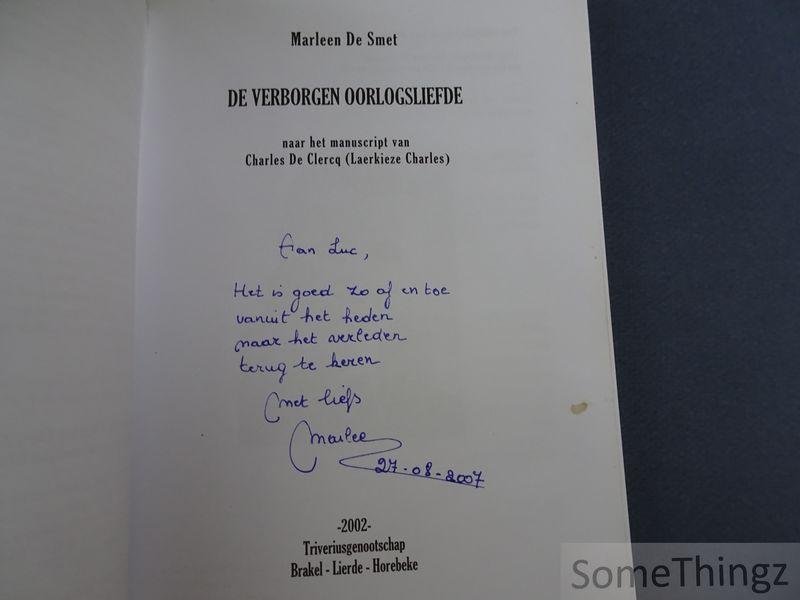 Marleen De Smet
DE VERBORGEN OORLOGSLIEFDE
naar het manuscript van
Charles De Clercq (Laerkieze Charles)
Aan Luc,
Het is goed zo af en toe
vanuit het heden
naar het verleden
terug te keren
Met liefs
Marleen
27-08-2007
-2002-
Triveriusgenootschap
Brakel - Lierde - Horebeke
SomeThingz